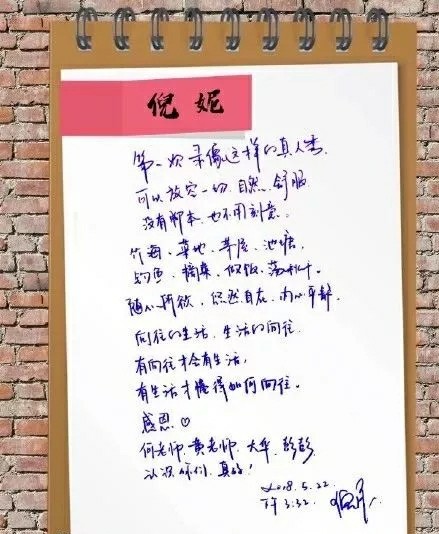 倪妮
第一次录像这样的真人秀
可以放空一切 自然 舒服
没有脚本 也不用刻意。
竹海、菜地、茅屋、池塘,
钓鱼、摘菜、做饭、荡秋千。
随心所欲,悠然自在,内心平静。
向往的生活 生活的向往
有向往才会有生活,
有生活才懂得如何向往。
感恩♡
何老师 黄老师、大华、彭彭
认识你们,真好!
2018.5.22
下午3:32